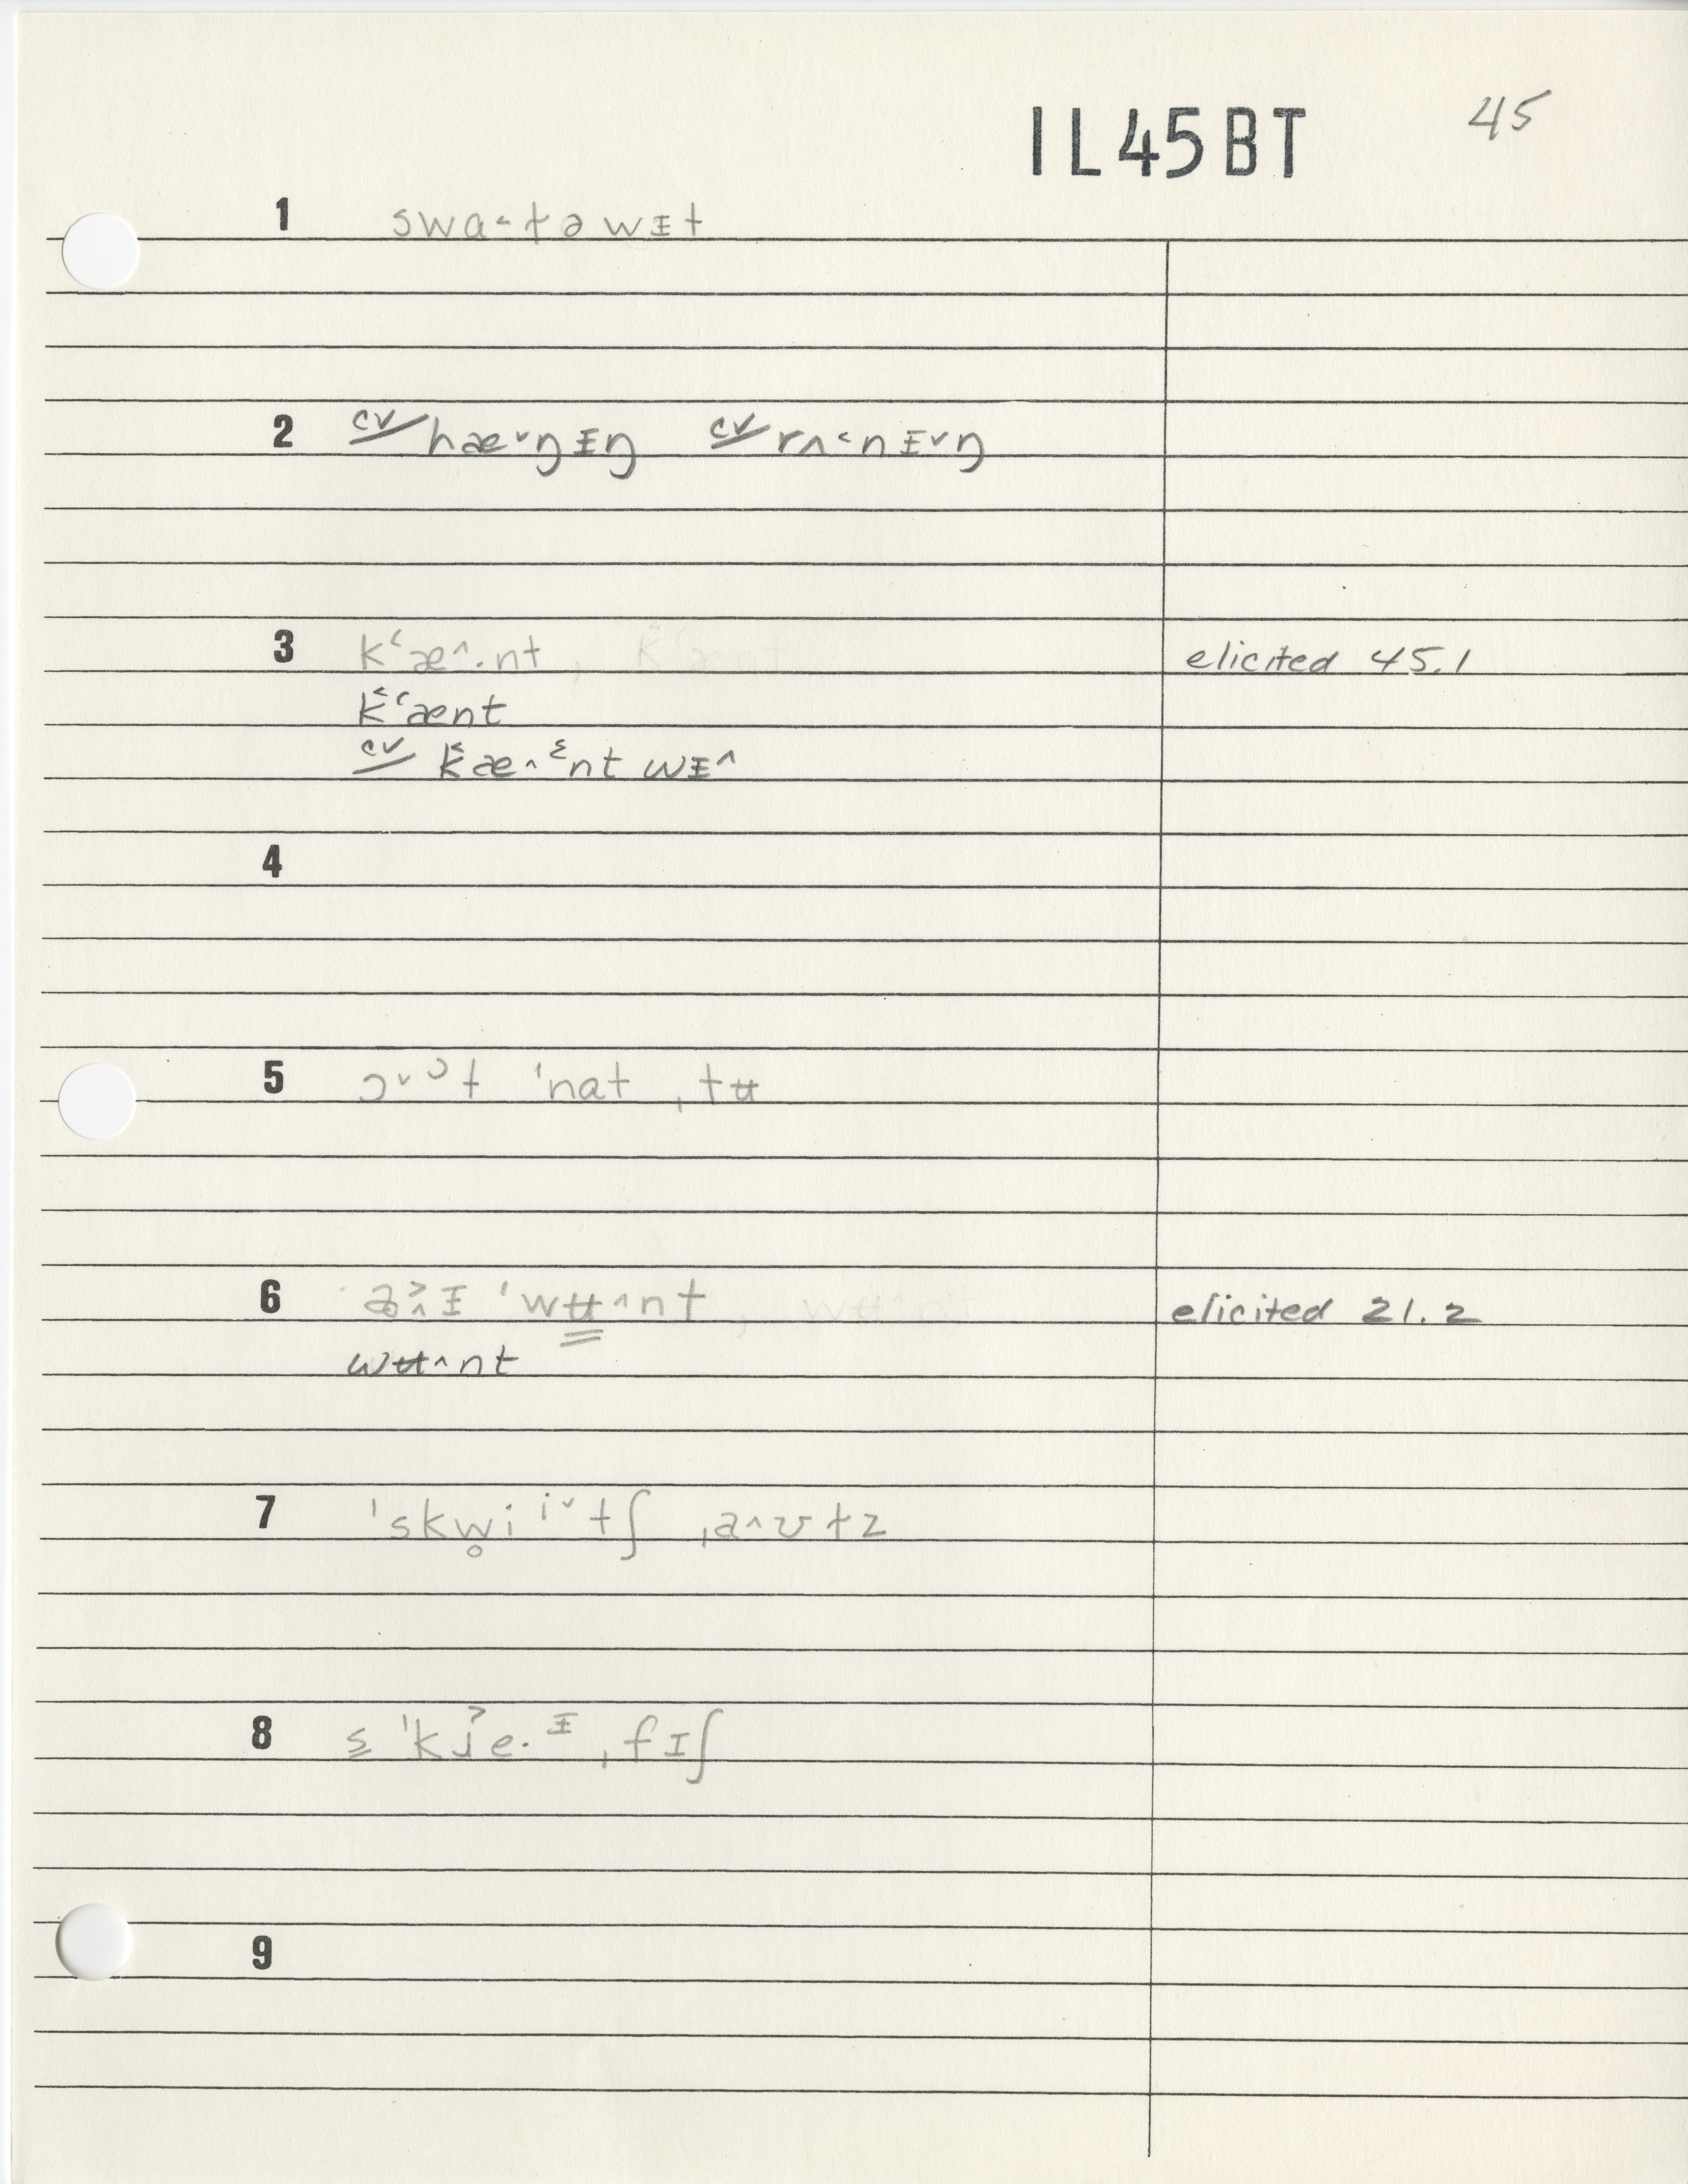 1L45BT 45
1 swa˂təwᵻt
2 cv hæ˅ŋᵻŋ cv rʌ˂nᵻ˅ŋ
3 k‘æ˄.nt, k̆‘ænt elicited 45.1
k̆‘ænt
cv k̆æ˄ᵋnt wᵻ˄
4
5 ɔ˅ᵓt ˈnat ˌtʉ
6 ˈwʉ˄nt, wʉ˄nt elicited 21.2
wʉ˄nt
7 ˈskw̥iⁱ˅tʃ ˌa˄ʊtz
8 ˌfɪʃ
9